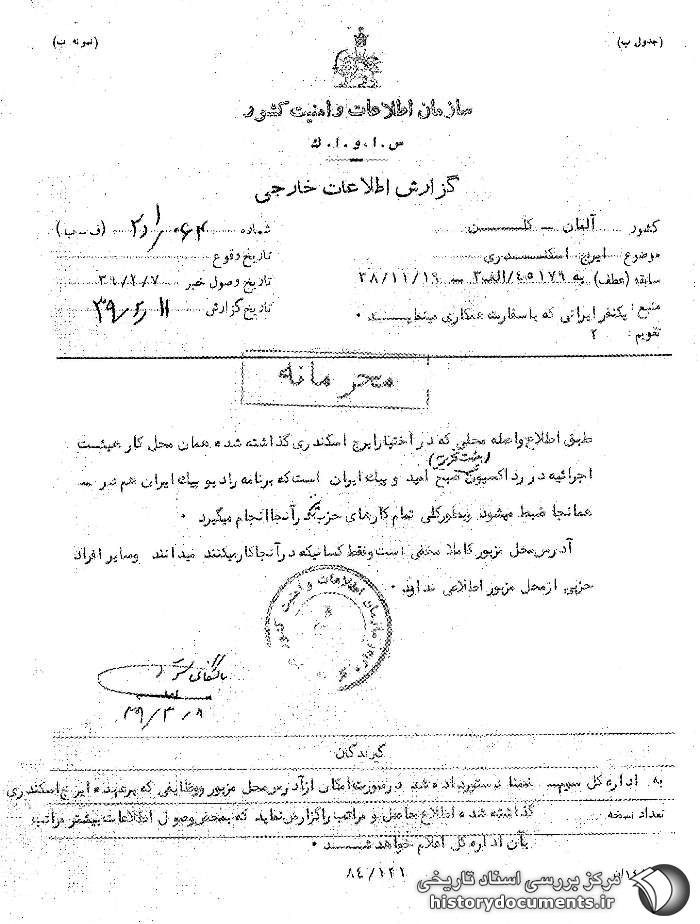 (جدول ب)
(نمونه ب)
سازمان اطلاعات وامنیت کشور
س.ا.و.ا.ك
گزارش اطلاعات خارجی
کشور آلمان - کلن
شماره (ف-ب)
موضوع ایرج اسکندری
تاریخ وقوع
سابقه (عطف) به ۴۵۱۷۹/الف۳ - ۳۸/۱۱/۱۹
تاریخ وصول خبر ۳۹/۲/۷
منبع: یکنفر ایرانی که با سفارت همکاری مینماید.
تاریخ گزارش
تقویم: ۲
محرمانه
طبق اطلاع واصله محلی که در اختیار ایرج اسکندری گذاشته شده همان محل کار هیئت
اجرائیه در رداکسیون صبح امید و پیک ایران است که برنامه رادیو پیک ایران هم در
همانجا ضبط میشود وبطور کلی تمام کارهای حزب در آنجا انجام میگیرد.
آدرس محل مزبور کاملا مخفی است و فقط کسانیکه در آنجا کار میکنند میدانند وسایر افراد
حزبی از محل مزبور اطلاعی ندارند.
سازمان اطلاعات و امنیت کشور
۳۹/۳/۸
گیرندگان
به اداره کل سوم ضمنا دستور داده شد در صورت امکان از آدرس محل مزبور ووظایفی که برعهده ایرج اسکندری
تعداد نسخه گذاشته شده اطلاع حاصل و مراتب را گزارش نماید که بمحض وصول اطلاعات بیشتر مراتب
بآن اداره کل اعلام خواهد شد.
۸۴/۱۲۱
مرکز بررسی اسناد تاریخی
historydocuments.ir